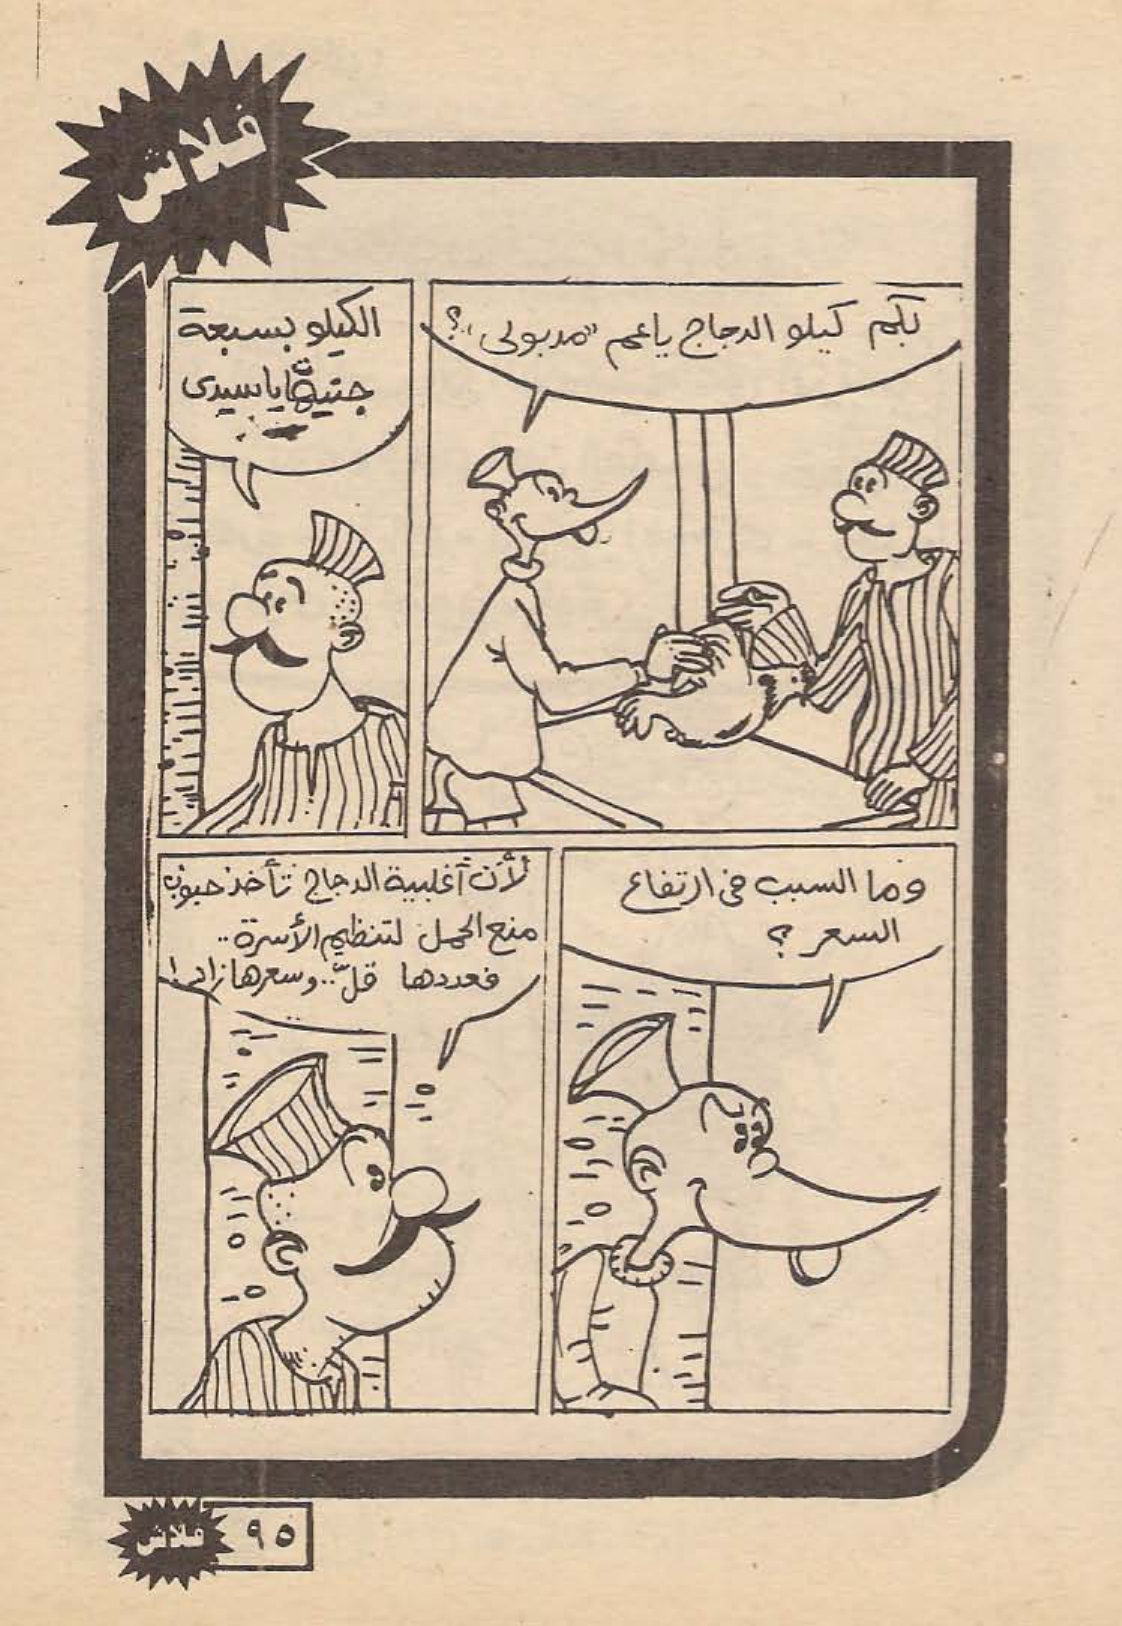 فلاش
بكم كيلو الدجاج ياعم "مدبولى"؟
الكيلو بسبعة
جنيهًا ياسيدى
وما السبب فى ارتفاع
السعر ؟
لأن أغلبية الدجاج تأخذ حبوب
منع الحمل لتنظيم الأسرة ..
فعددها قلّ .. وسعرها زاد !
فلاش
٩٥